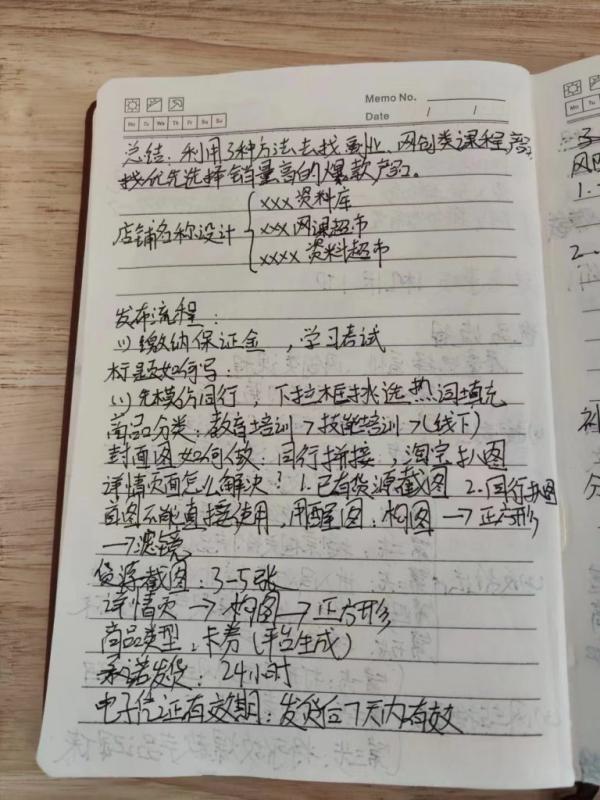 Memo No.
Mo Tu We Th Fr Sa Su
Date / /
总结：利用3种方法去找副业、网创类课程,
找优先选择销量高的爆款产品。
店铺名称设计
xxx资料库
xxx网课超市
xxxx资料超市
发布流程：
(1)缴纳保证金，学习考试
标题如何写：
(1)先模仿同行，下拉框挑选热词填充
商品分类：教育培训>技能培训>(线下)
封面图如何做：同行拼接，淘宝扒图
详情页面怎么解决？1.已有货源截图 2.同行扒图
图不能直接使用，用醒图：构图→正方形
→滤镜
货源截图：3-5张
详情页→构图→正方形
商品类型：卡券(平台生成)
承诺发货：24小时
电子凭证有效期：发货后7天内有效